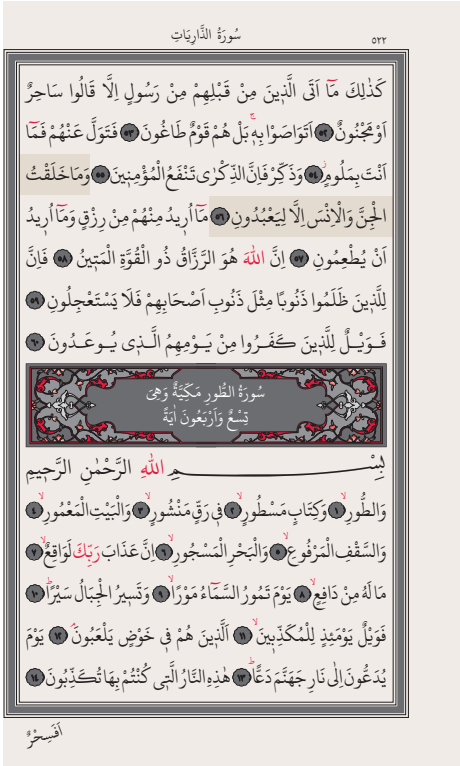 سُورَةُ الذَّارِيَاتِ
٥٢٢
كَذٰلِكَ مَٓا اَتَى الَّذ۪ينَ مِنْ قَبْلِهِمْ مِنْ رَسُولٍ اِلَّا قَالُوا سَاحِرٌ
اَوْ مَجْنُونٌ ٥٢ اَتَوَاصَوْا بِه۪ۚ بَلْ هُمْ قَوْمٌ طَاغُونَ ٥٣ فَتَوَلَّ عَنْهُمْ فَمَٓا
اَنْتَ بِمَلُومٍۘ ٥٤ وَذَكِّرْ فَاِنَّ الذِّكْرٰى تَنْفَعُ الْمُؤْمِن۪ينَ ٥٥ وَمَا خَلَقْتُ
الْجِنَّ وَالْاِنْسَ اِلَّا لِيَعْبُدُونِ ٥٦ مَٓا اُر۪يدُ مِنْهُمْ مِنْ رِزْقٍ وَمَٓا اُر۪يدُ
اَنْ يُطْعِمُونِ ٥٧ اِنَّ اللّٰهَ هُوَ الرَّزَّاقُ ذُو الْقُوَّةِ الْمَت۪ينُ ٥٨ فَاِنَّ
لِلَّذ۪ينَ ظَلَمُوا ذَنُوبًا مِثْلَ ذَنُوبِ اَصْحَابِهِمْ فَلَا يَسْتَعْجِلُونِ ٥٩
فَوَيْلٌ لِلَّذ۪ينَ كَفَرُوا مِنْ يَوْمِهِمُ الَّذ۪ى يُوعَدُونَ ٦٠
سُورَةُ الطُّورِ مَكِّيَّةٌ وَهِىَ
تِسْعٌ وَاَرْبَعُونَ اٰيَةً
بِسْمِ اللّٰهِ الرَّحْمٰنِ الرَّح۪يمِ
وَالطُّورِۙ ١ وَكِتَابٍ مَسْطُورٍۙ ٢ ف۪ى رَقٍّ مَنْشُورٍۙ ٣ وَالْبَيْتِ الْمَعْمُورِۙ ٤
وَالسَّقْفِ الْمَرْفُوعِۙ ٥ وَالْبَحْرِ الْمَسْجُورِۙ ٦ اِنَّ عَذَابَ رَبِّكَ لَوَاقِعٌۙ ٧
مَا لَهُ مِنْ دَافِعٍۙ ٨ يَوْمَ تَمُورُ السَّمَٓاءُ مَوْرًاۙ ٩ وَتَس۪يرُ الْجِبَالُ سَيْرًاۜ ١٠
فَوَيْلٌ يَوْمَئِذٍ لِلْمُكَذِّب۪ينَۙ ١١ اَلَّذ۪ينَ هُمْ ف۪ى خَوْضٍ يَلْعَبُونَۢ ١٢ يَوْمَ
يُدَعُّونَ اِلٰى نَارِ جَهَنَّمَ دَعًّاۜ ١٣ هٰذِهِ النَّارُ الَّت۪ى كُنْتُمْ بِهَا تُكَذِّبُونَ ١٤
اَفَسِحْرٌ